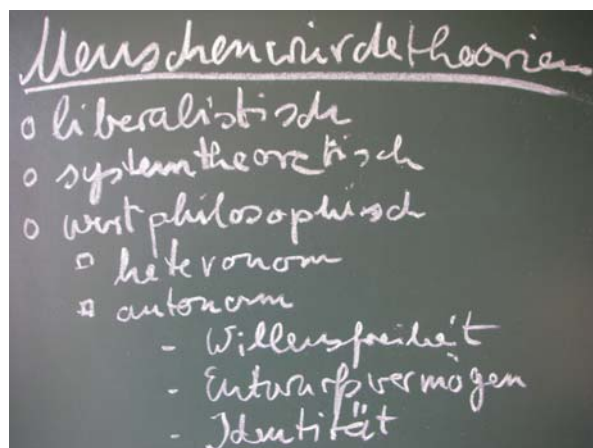 Menschenwürdetheorien
o liberalistisch
o systemtheoretisch
o wertphilosophisch
□ heteronom
□ autonom
- Willensfreiheit
- Entwurfsvermögen
- Identität